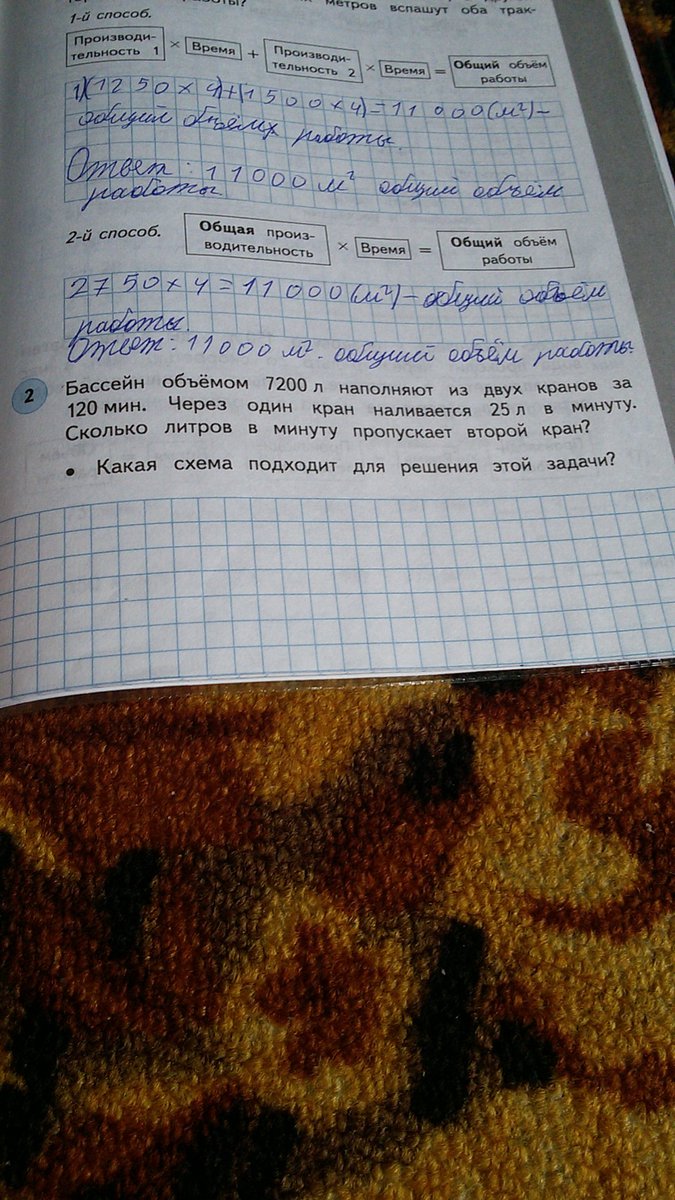 метров вспашут оба трак-
1-й способ.
Производи-
тельность 1 × Время + Производи-
тельность 2 × Время = Общий объём
работы
1)(1250×4)+(1500×4)=11000(м²)–
общий объёмих работы.
Ответ: 11000 м² общий объём
работы
2-й способ.
Общая произ-
водительность × Время = Общий объём
работы
2750×4=11000(м²)–общий объём
работы.
Ответ: 11000 м². общий объём работы.
2 Бассейн объёмом 7200 л наполняют из двух кранов за
120 мин. Через один кран наливается 25 л в минуту.
Сколько литров в минуту пропускает второй кран?
• Какая схема подходит для решения этой задачи?